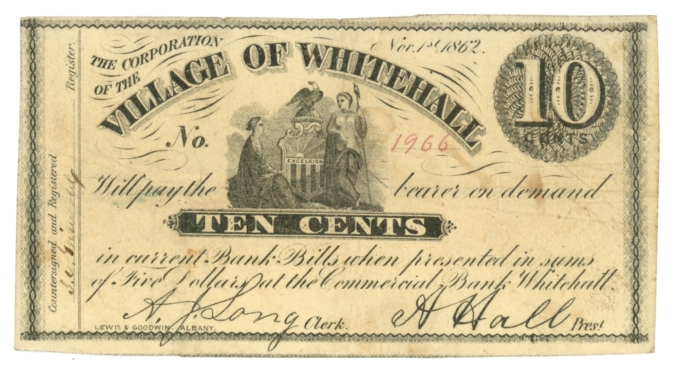 THE CORPORATION
OF THE
VILLAGE OF WHITEHALL
Nov. 1st 1862.
10
CENTS
No.
1966
EXCELSIOR
Will pay the bearer on demand
TEN CENTS
in current Bank Bills when presented in sums
of Five Dollars at the Commercial Bank Whitehall.
A. J. Long Clerk.
A Hall Prest
LEWIS & GOODWIN, ALBANY.
Countersigned and Registered
Register.